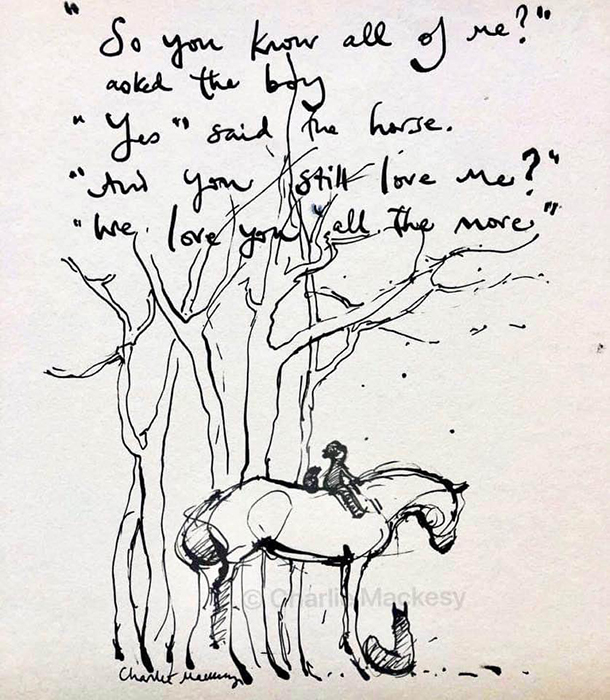 "So you know all of me?"
asked the boy
"Yes" said the horse.
"And you still love me?"
"We love you all the more"
© Charlie Mackesy
Charlie Mackesy